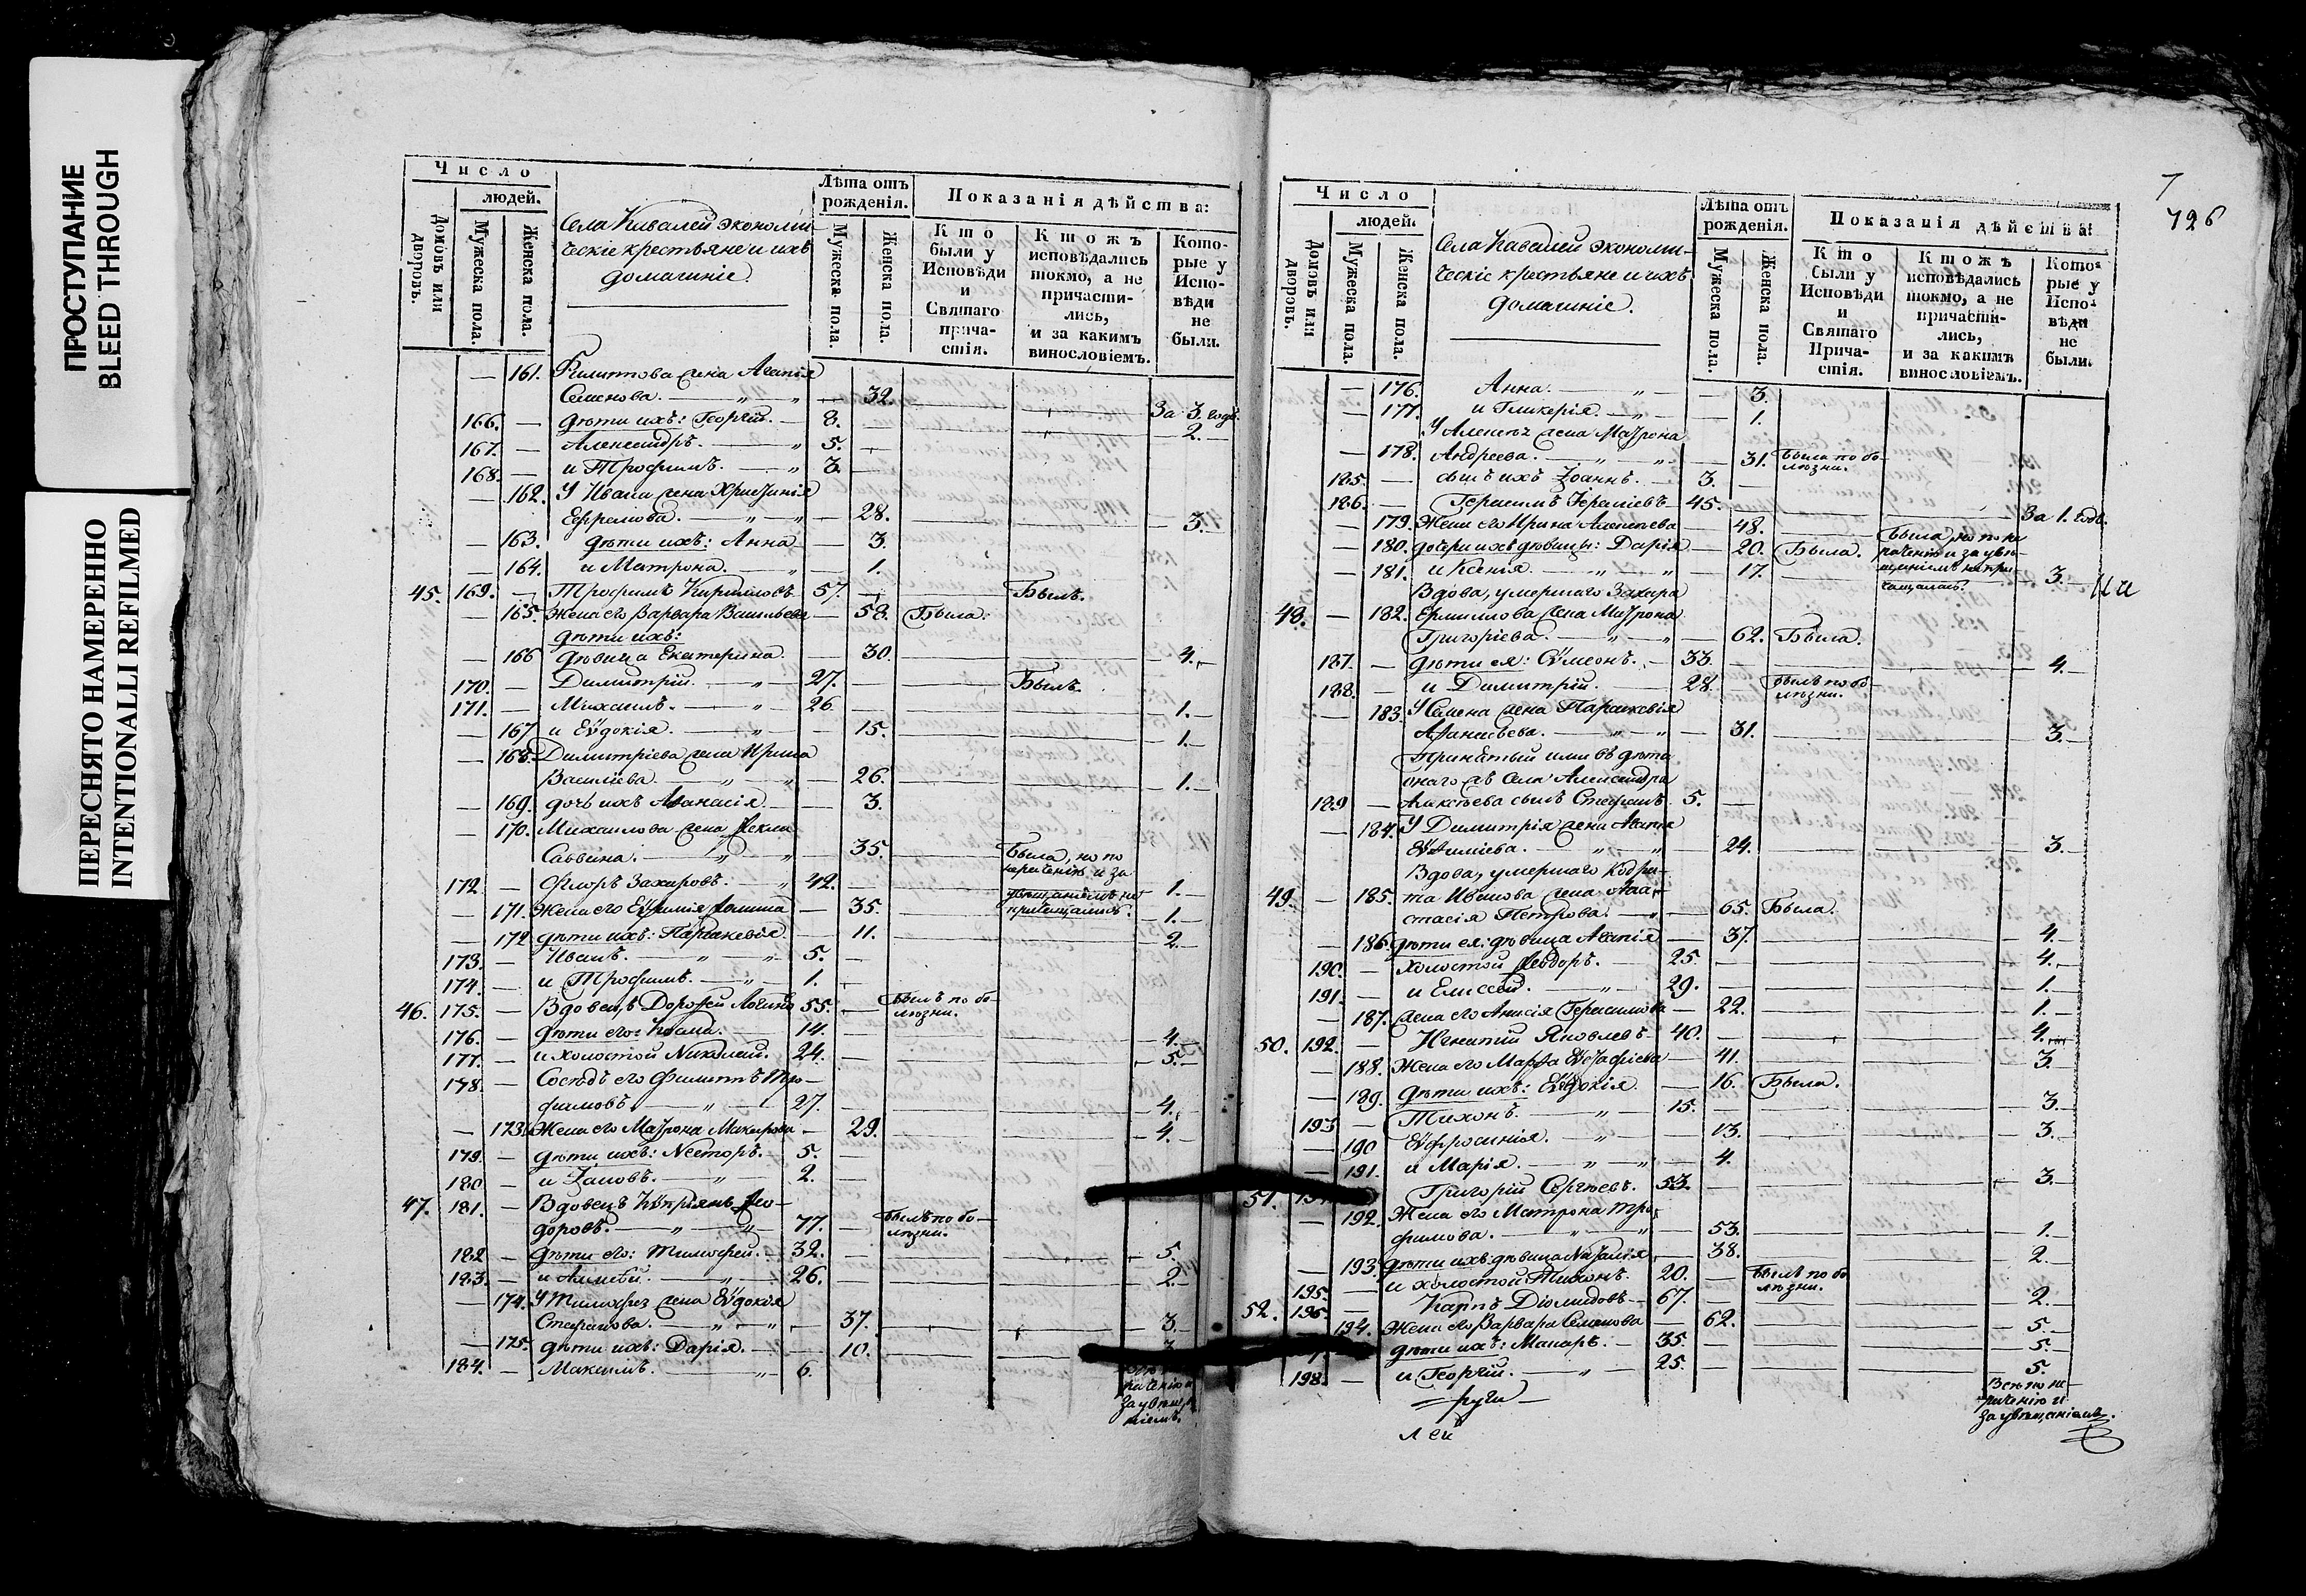 ПРОСТУПАНИЕ
BLEED THROUGH
ПЕРЕСНЯТО НАМЕРЕННО
INTENTIONALLI REFILMED
Число
людей.
Домовъ или дворовъ.
Мужеска пола.
Женска пола.
Села Кивалей экономи-
ческіе крестьяне и ихъ
домашніе.
Лѣта отъ рожденія.
Мужеска пола.
Женска пола.
Показанія дѣйства:
Кто были у Исповѣди и Святаго прича-стія.
Ктожъ исповѣдались токмо, а не причасти-лись, и за какимъ винословіемъ.
Кото-рые у Испо-вѣди не были.
— 161. Филиппова жена Агапія
Семенова. — 32. За 3. года.
166. — дѣти ихъ: Георгій. — 8. 2.
167. — Александръ. — 5.
168. — и Трофимъ. — 3.
— 162. У Ивана жена Христинія
Ефремова. — 28. 3.
— 163. дѣти ихъ: Анна — 3.
— 164. и Матрона. — 1.
45. 169. — Трофимъ Кириловъ. 57. Былъ.
— 165. Жена его Варвара Васильева — 58. Была.
дѣти ихъ:
— 166 дѣвица Екатерина. — 30. 4.
170. — Димитрій. — 27. Былъ.
171. — Михаилъ. — 26. 1.
— 167 и Евдокія. — 15. 1.
— 168. Димитріева жена Ирина
Васильева. — 26. 1.
— 169. дочь ихъ Афанасія — 3.
— 170. Михаилова жена Фекла
Саввина. — 35. Была, но по
нераченію и за
172. — Флоръ Захаровъ. 42. 1.
— 171. Жена его Евфимія Фомина — 35. 1.
— 172 дѣти ихъ: Параскевія — 11. 2.
173. — Иванъ. — 5.
174. — и Трофимъ. — 1.
46. 175. — Вдовецъ Дорофей 55. Былъ по бо-
лѣзни.
176. — дѣти его: Козма. — 14. 4.
177. — и холостой Николай. 24. 5.
178. — Сосѣдъ его Филиппъ Тро-
фимовъ — 27. 4.
— 173. Жена его Матрона Макарова — 29. 4.
179. — дѣти ихъ: Несторъ. 5.
180 — и Іаковъ. — 2.
47. 181. — Вдовецъ Купріянъ Фео-
доровъ. — 77. Былъ по бо-
лѣзни.
182 — дѣти его: Тимофей. 32. 5.
183. — и Алексѣй. — 26. 2.
— 174. У Тимофея жена Евдокія
Стефанова. — 37. 3.
— 175. дѣти ихъ: Дарія. — 10.
184. — Максимъ. — 6.
раченію и
за увѣща
ніемъ.
7
726
Число
людей.
Домовъ или дворовъ.
Мужеска пола.
Женска пола.
Села Кивалей экономи-
ческіе крестьяне и ихъ
домашніе.
Лѣта отъ рожденія.
Мужеска пола.
Женска пола.
Показанія дѣйства:
Кто были у Исповѣди и Святаго Прича-стія.
Ктожъ исповѣдались токмо, а не причасти-лись, и за какимъ винословіемъ.
Кото-рые у Испо-вѣди не были.
— 176. Анна. — 3.
— 177. и Гликерія. — 1.
У Алексѣя жена Матрона
— 178. Андреева. — 31. Была по бо-
лѣзни.
185. — сынъ ихъ Іоаннъ. — 3.
186. — Герасимъ 45. За 1. годъ.
— 179. Жена его Ирина Алексѣева 48. Была, но по не
— 180. дочери ихъ дѣвицы: Дарія — 20. Была. раченію и за увѣ-
— 181. и Ксенія. — 17. щаніемъ не при- 3.
чащалась.
Вдова, умершаго Захара
48. — 182. Ермилова жена Матрона
Григоріева. — 62. Была.
187. — дѣти ея: Сумеонъ. 33. 4.
188. — и Димитрій. 28. Былъ по бо-
лѣзни.
— 183. У Семена жена Параскевія
Афанасьева. — 31. 3.
Принятый ими въ дѣти
онаго жъ села Александра
189 — Алексѣева сынъ Стефанъ. 5.
— 184. У Димитрія жена Агапія
Евфиміева. — 24. 3.
Вдова, умершаго Кодра-
49. — 185. та Иванова жена Ана-
стасія Петрова. — 65. Была.
— 186. дѣти ея: дѣвица Агапія — 37. 4.
190. — холостой Феодоръ. 25. 4.
191. — и Елиссей. — 29. 1.
— 187. жена его Анисія Герасимова — 22. 1.
50. 192. — Игнатій Яковлевъ 40. 4.
— 188. Жена его Марфа Евстафіева — 41. 3.
— 189. дѣти ихъ: Евдокія. — 16. Была.
193 — Тихонъ. — 15. 3.
— 190 Евфросинія. — 13. 3.
— 191. и Марія. — 4.
51. Григорій Сергѣевъ. 53. 3.
— 192. Жена его Матрона Тро-
фимова. — 53. 1.
— 193. дѣти ихъ: дѣвица Наталія — 38. 2.
195. — и холостой Тихонъ. 20. Былъ по бо
лѣзни.
52. 196. — Карпъ Діомидовъ — 67. 2.
— 194. Жена его Варвара Семенова — 62. 5.
дѣти ихъ: Макаръ. — 35. 5.
198. — и Георгій. — 25. 5.
Всѣ по не-
раченію и
за увѣщаніемъ.